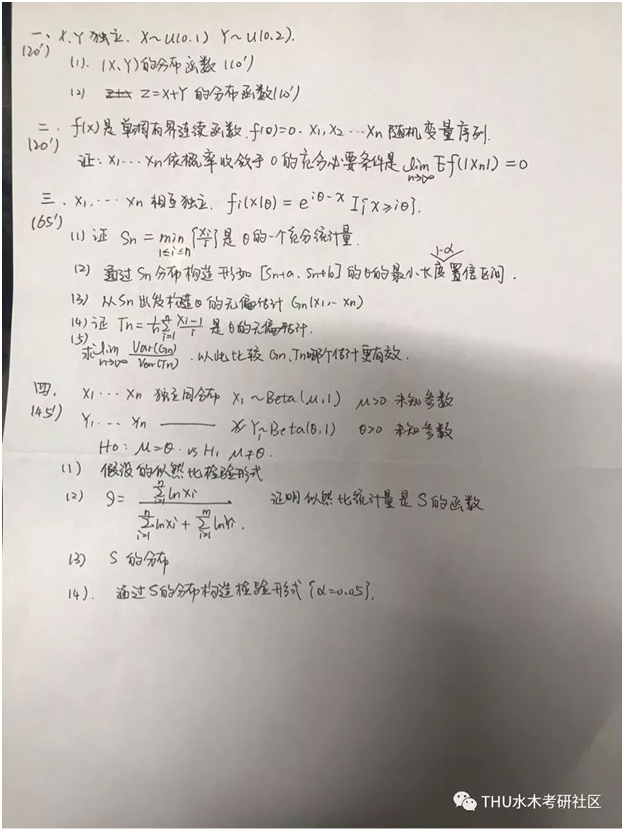 一、X,Y独立. X~U(0.1) Y~U(0.2).
(20') (1). (X、Y)的分布函数(10')
(2) Z=X+Y的分布函数(10')
二. f(x)是单调有界连续函数. f(0)=0. X₁,X₂…Xn随机变量序列.
(20') 证: X₁…Xn依概率收敛于0的充分必要条件是 lim n→∞ Ef(|Xn|)=0
三. X₁,…Xn相互独立. fi(x|θ)=e^{iθ-x} I{x≥iθ}.
(65') (1) 证 Sn = min 1≤i≤n {Xi/i}是θ的一个充分统计量.
1-α
(2) 通过Sn分布构造形如[Sn+a、Sn+b]的θ的最小长度置信区间.
(3) 从Sn出发构造θ的无偏估计Gn(X₁…Xn)
(4) 证 Tn=1/n Σ^n_{i=1} (Xi-1)/i 是θ的无偏估计.
(5) 求lim n→∞ Var(Gn)/Var(Tn). 以此比较Gn、Tn哪个估计更有效.
四. X₁…Xn 独立同分布 X₁~Beta(μ,1) μ>0 未知参数
(45') Y₁…Yn —— Y₁~Beta(θ,1) θ>0 未知参数
H₀: μ=θ. vs H₁ μ≠θ.
(1) 假设的似然比检验形式
(2) S= Σ^n_{i=1} lnXi / (Σ^n_{i=1} lnXi + Σ^m_{i=1} lnYi). 证明似然比统计量是S的函数
(3) S的分布
(4). 通过S的分布构造检验形式{α=0.05}.
THU水木考研社区